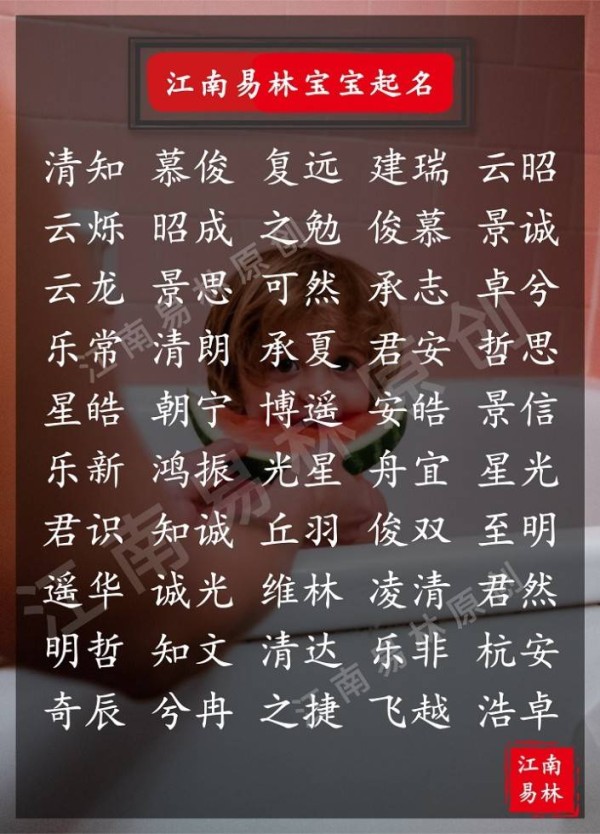 江南易林宝宝起名
清知 慕俊 复远 建瑞 云昭
云烁 昭成 之勉 俊慕 景诚
云龙 景思 可然 承志 卓兮
乐常 清朗 承夏 君安 哲思
星皓 朝宁 博遥 安皓 景信
乐新 鸿振 光星 舟宜 星光
君识 知诚 丘羽 俊双 至明
遥华 诚光 维林 凌清 君然
明哲 知文 清达 乐非 杭安
奇辰 兮冉 之捷 飞越 浩卓
江南易林原创
江南易林原创
江南易林原创
江南
易林